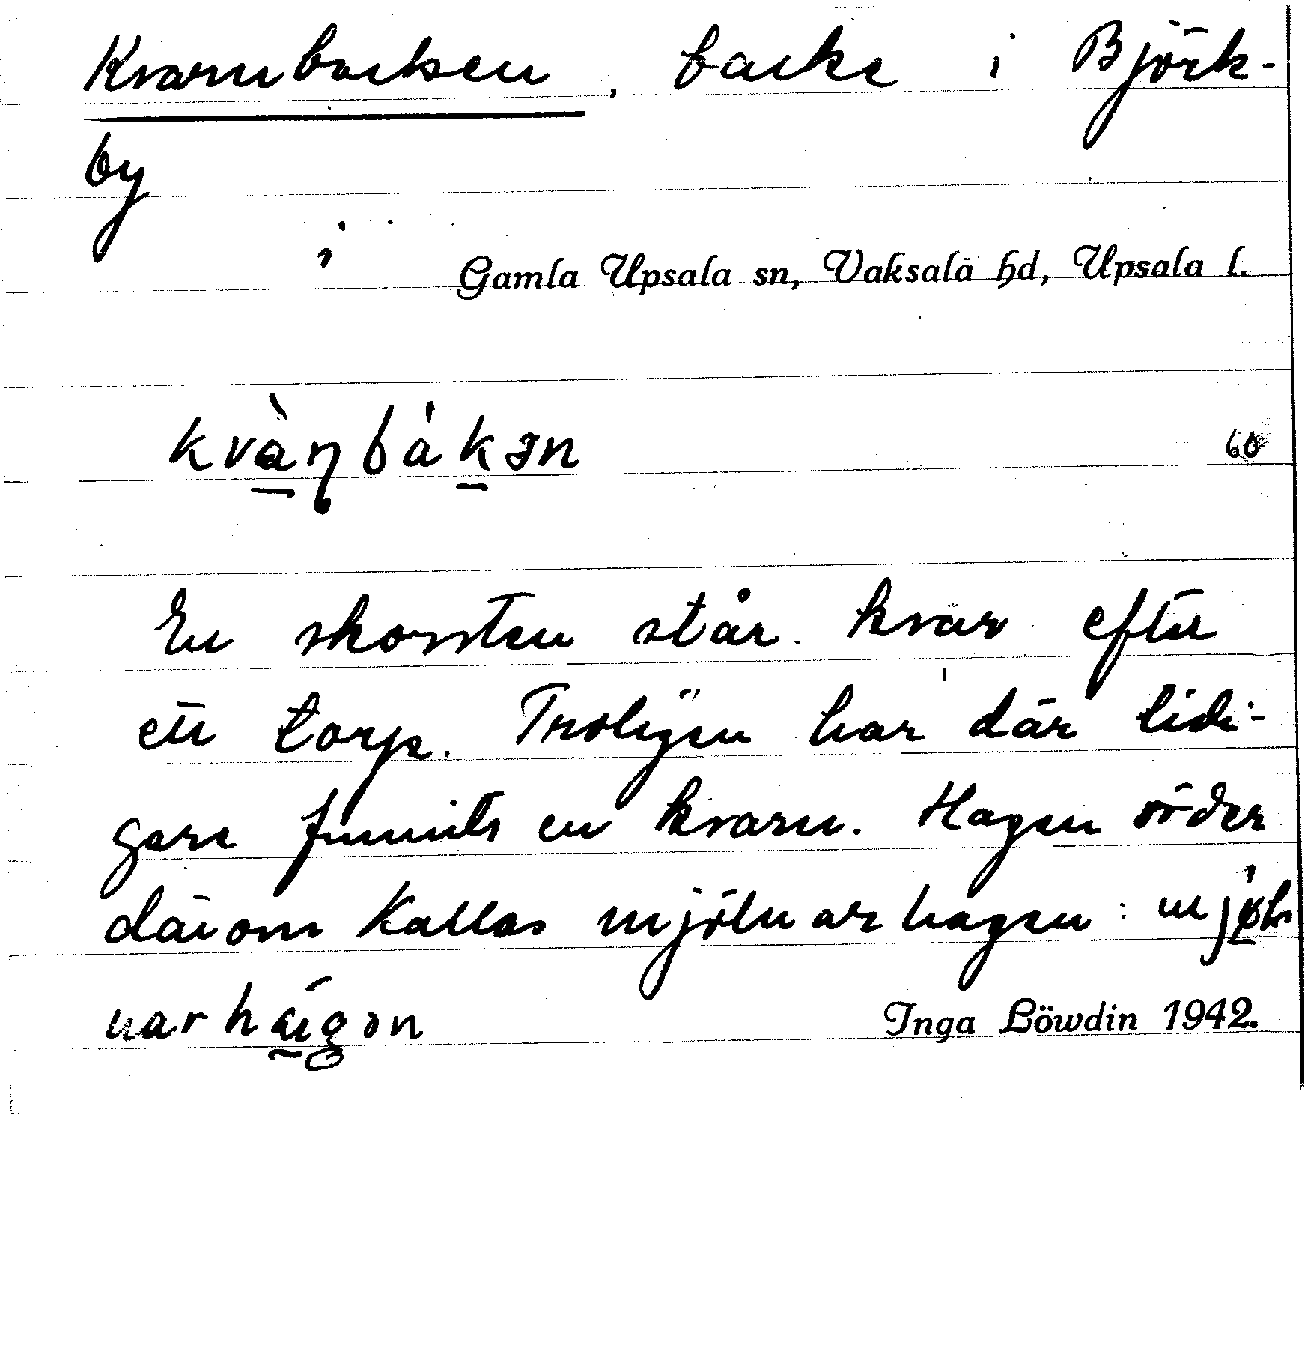 Kvarnbacken, backe i Björk-
by
i Gamla Upsala sn, Vaksala hd, Upsala l.
kvànbákən
60
En skorsten står kvar efter
ett torp. Troligen har där tidi-
gare funnits en kvarn. Hagen söder
därom kallas mjölnarhagen: mjøl-
narhágən
Inga Löwdin 1942.